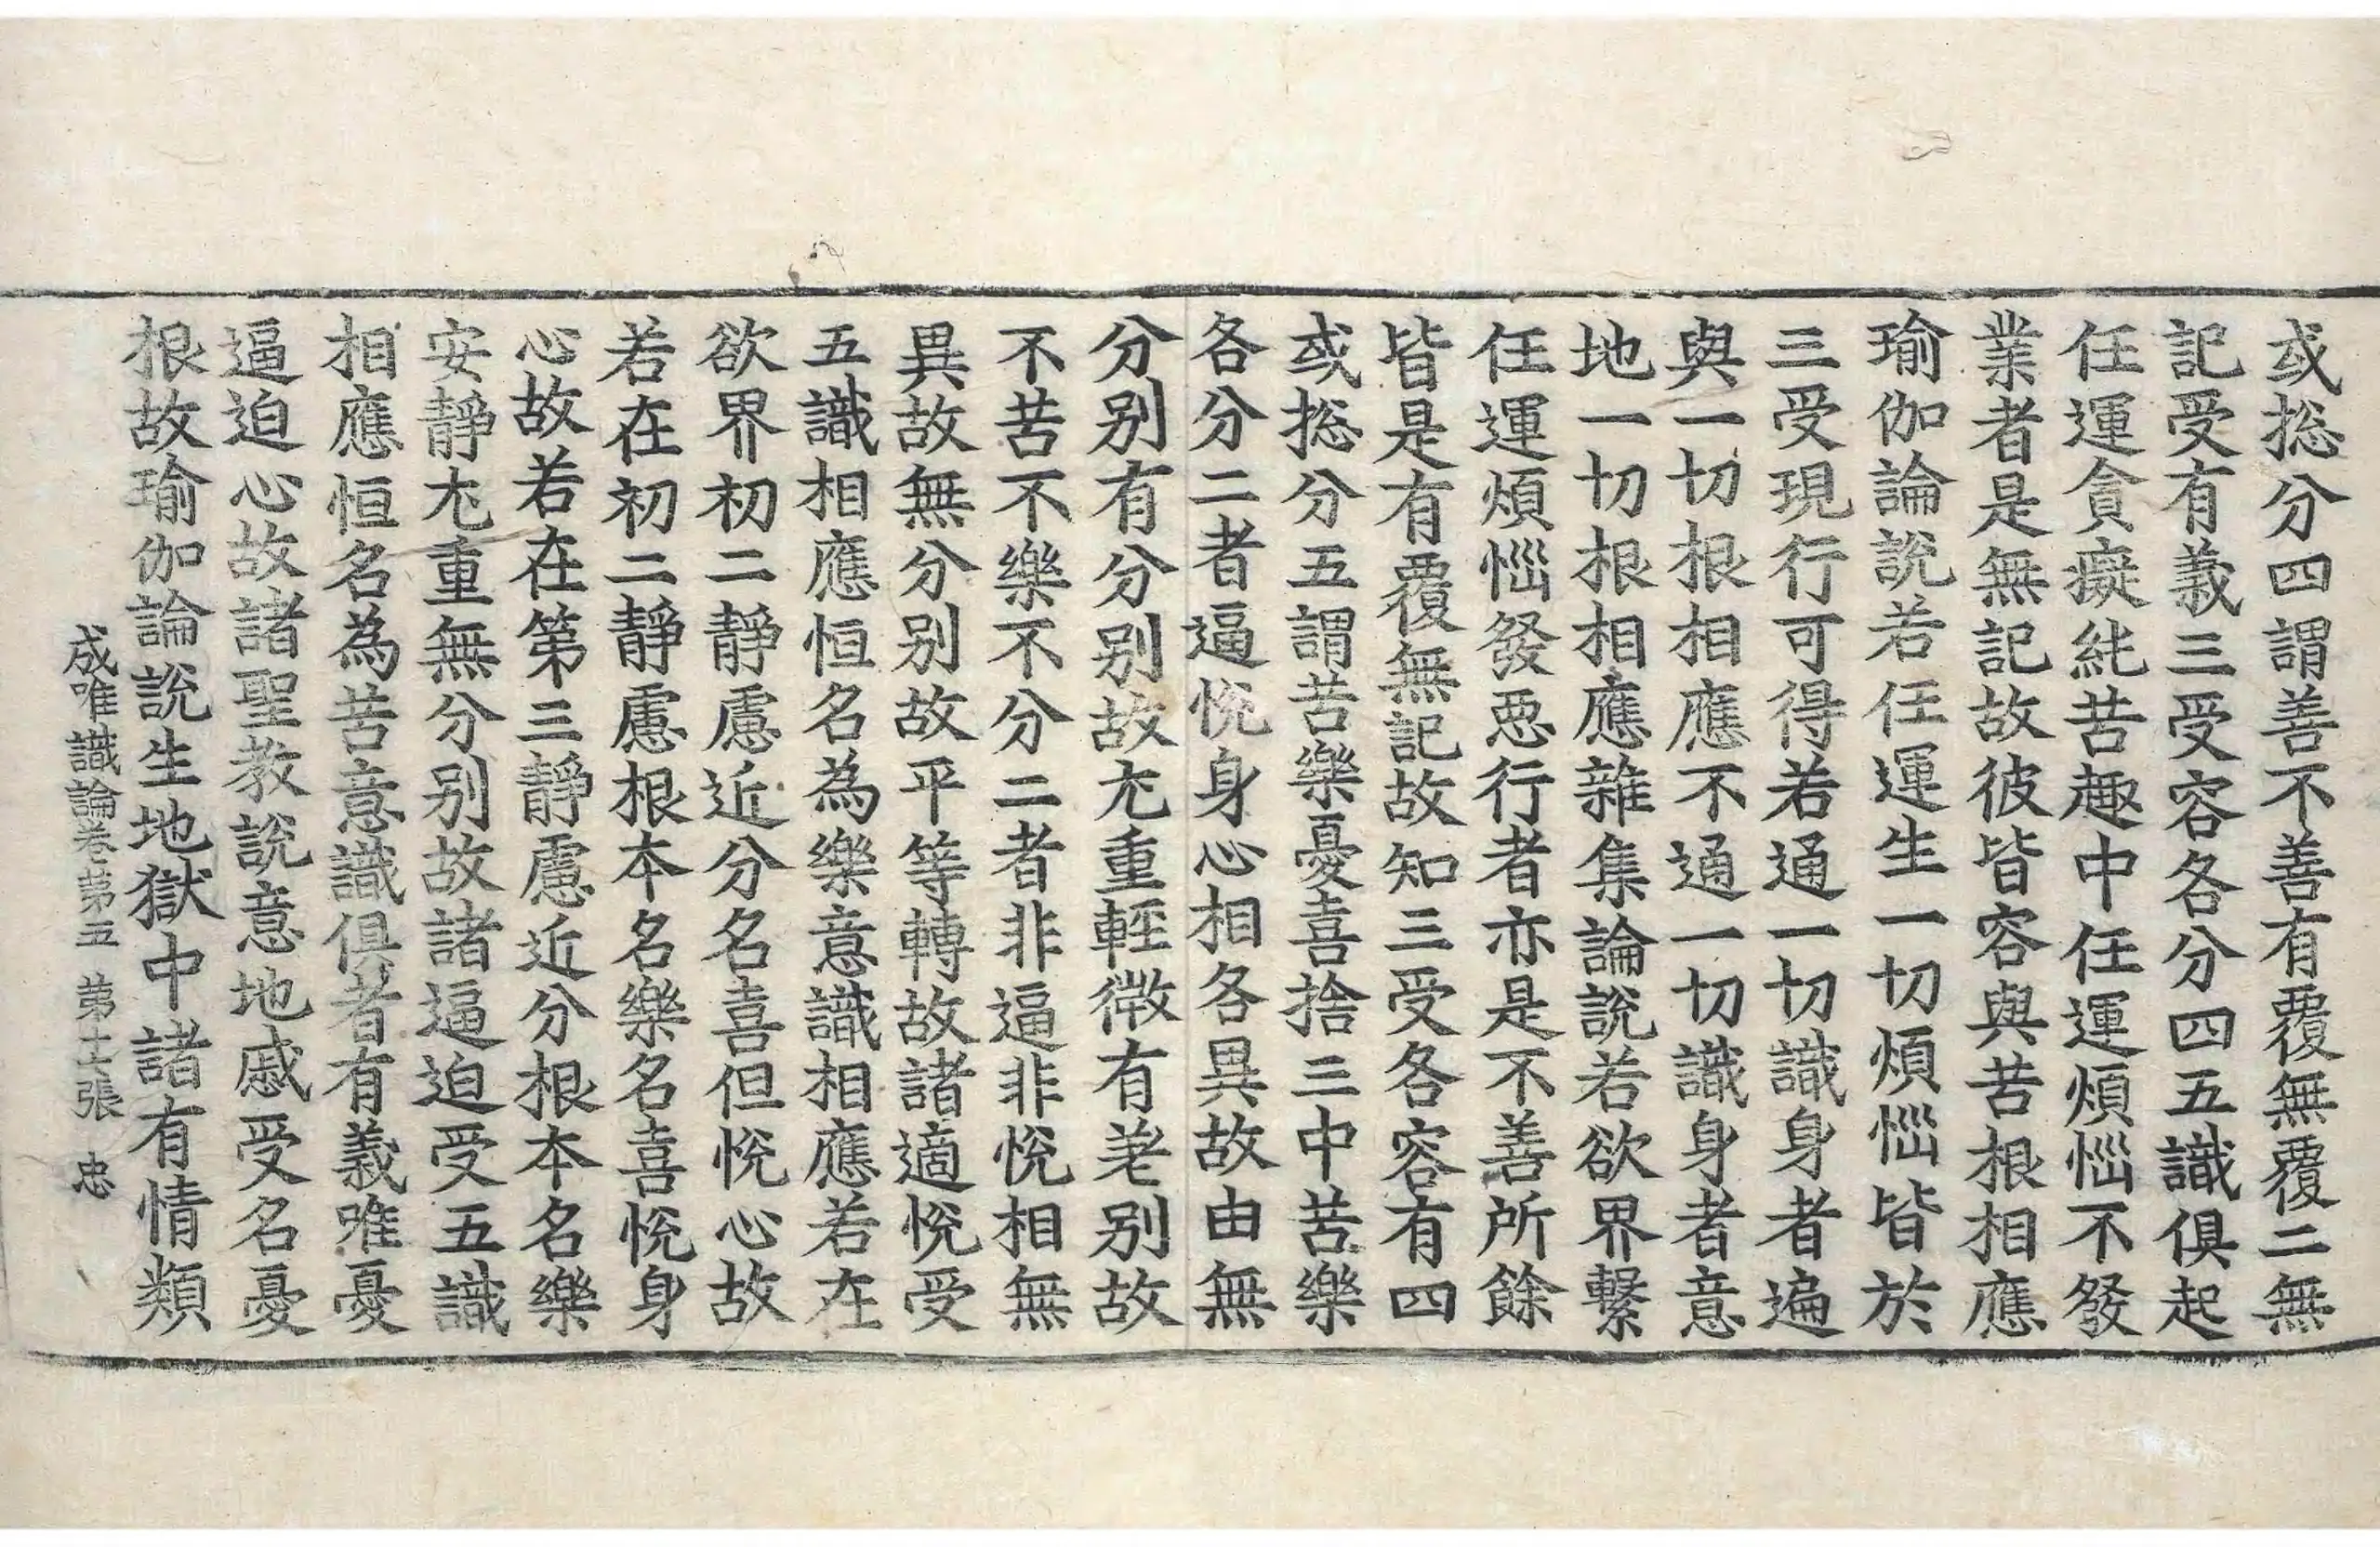 或捴分四謂善不善有覆無覆二無
記受有義三受容各分四五識俱起
任運貪癡純苦趣中任運煩惱不發
業者是無記故彼皆容與苦根相應
瑜伽論說若任運生一切煩惱皆於
三受現行可得若通一切識身者遍
與一切根相應不通一切識身者意
地一切根相應雜集論說若欲界繫
任運煩惱發惡行者亦是不善所餘
皆是有覆無記故知三受各容有四
或捴分五謂苦樂憂喜捨三中苦樂
各分二者逼悅身心相各異故由無
分別有分別故尤重輕微有差別故
不苦不樂不分二者非逼非悅相無
異故無分別故平等轉故諸適悅受
五識相應恒名為樂意識相應若在
欲界初二靜慮近分名喜但悅心故
若在初二靜慮根本名樂名喜悅身
心故若在第三靜慮近分根本名樂
安靜尤重無分別故諸逼迫受五識
相應恒名為苦意識俱者有義唯憂
逼迫心故諸聖教說意地慼受名憂
根故瑜伽論說生地獄中諸有情類
成唯識論卷第五 第十七張 忠